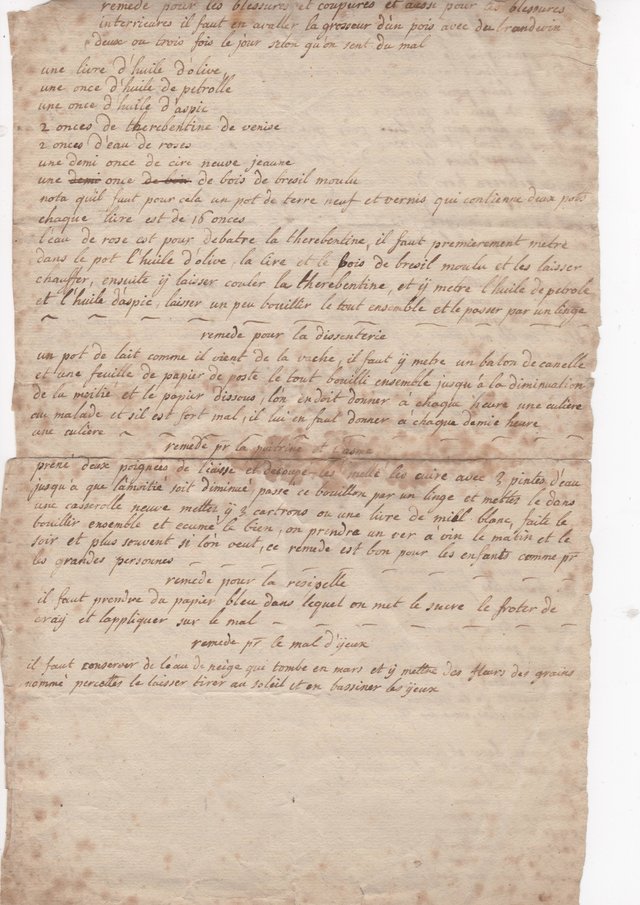 remede pour les blessures et coupures et aussi pour les blessures
interrieures il faut en avaller la grosseur d'un pois avec du brandwin
deux ou trois fois le jour selon qu'on sent du mal
une livre d'huile d'olive
une once d'huile de petrolle
une once d'huile d'aspic
2 onces de therebentine de venise
2 onces d'eau de roses
une demi once de cire neuve jeaune
une demi once de bois de bois de bresil moulu
nota quil faut pour cela un pot de terre neuf et vernis qui contienne deux pots
chaque livre est de 16 onces
l'eau de rose est pour debatre la therebentine, il faut premierement metre
dans le pot l'huile d'olive la cire et le bois de bresil moulu et les laisser
chauffer, ensuite ÿ laisser couler la therebentine, et ÿ metre l'huile de petrole
et l'huile d'aspic, laisser un peu bouillir le tout ensemble et le passer par un linge
remede pour la dissenterie
un pot de lait comme il vient de la vache, il faut ÿ metre un baton de canelle
et une feuille de papier de poste le tout bouilli ensemble jusqu'a la diminuation
de la moitié et le papier dissous, l'on en doit donner à chaque heure une culière
au malade et sil est fort mal, il lui en faut donner à chaque demie heure
une culière
remede pr la poitrine et l'asme
prené deux poignees de et decoupe les metté les cuire avec 3 pintes d'eau
jusqu'a que la moitié soit diminué passe ce bouillon par un linge et mettez le dans
une casserolle neuve mettez ÿ 3 cartrons ou une livre de miel blanc, faite le
bouillir ensemble et ecumé le bien, on prendra un ver a vin le matin et le
soir et plus souvent si l'on veut, ce remede est bon pour les enfants comme pr
les grandes personnes
remede pour la resipelle
il faut prendre du papier bleu dans lequel on met le sucre le froter de
craÿ et l'appliquer sur le mal
remede pr le mal d'ÿeux
il faut conserver de l'eau de neige qui tombe en mars et ÿ mettre des fleurs des grains
nommé percelles le laisser tirer au soleil et en bassiner les ÿeux